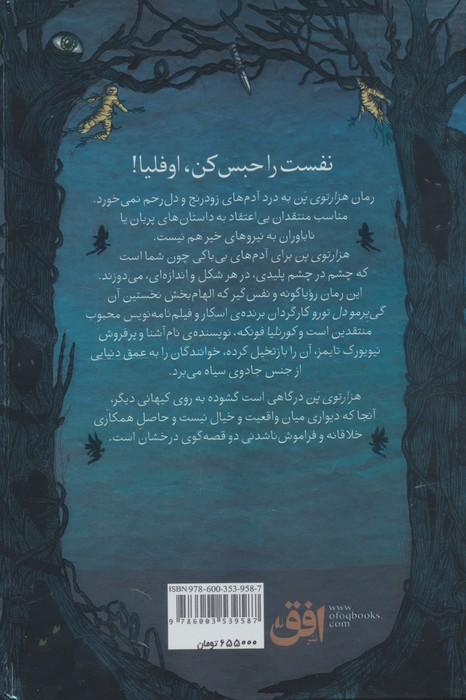 نفست را حبس کن، اوفلیا!
رمان هزارتوی پَن به درد آدم‌های زودرنج و دل‌رحم نمی‌خورد.
مناسب منتقدان بی‌اعتقاد به داستان‌های پریان یا
ناباوران به نیروهای خیر هم نیست.
هزارتوی پن برای آدم‌های بی‌باکی چون شما است
که چشم در چشم پلیدی، در هر شکل و اندازه‌ای، می‌دوزند.
این رمان رؤیاگونه و نفس‌گیر که الهام‌بخش نخستین آن
گی‌یرمو دل تورو کارگردان برنده‌ی اسکار و فیلم‌نامه‌نویس محبوب
منتقدین است و کورنلیا فونکه، نویسنده‌ی نام‌آشنا و پرفروش
نیویورک تایمز، آن را بازتخیل کرده، خوانندگان را به عمق دنیایی
از جنس جادوی سیاه می‌برد.
هزارتوی پن درگاهی است گشوده به روی کیهانی دیگر،
آنجا که دیواری میان واقعیت و خیال نیست و حاصل همکاری
خلاقانه و فراموش‌ناشدنی دو قصه‌گوی درخشان است.
ISBN 978-600-353-958-7
9 786003 539587
۶۵۵۰۰۰ تومان
افق
www.
ofoqbooks.
com